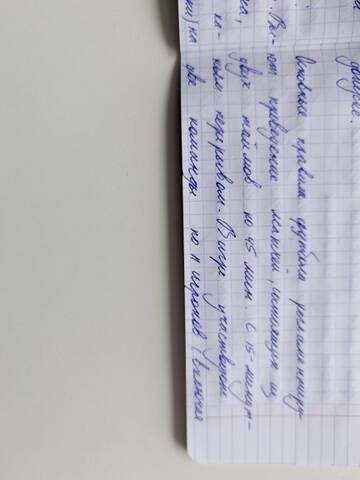 Основные правила футбола регламентиру-
ют проведение матчей, состоящих из
двух таймов по 45 мин. с 15-минут-
ным перерывом. В игре участвуют
две команды по 11 игроков (включая